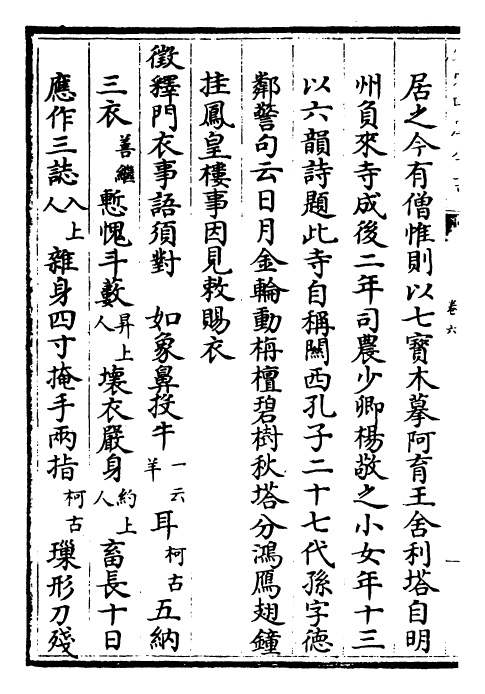 居之今有僧惟則以七寳木摹阿育王舍利塔自明
州負來寺成後二年司農少卿楊敬之小女年十三
以六韻詩題此寺自稱關西孔子二十七代孫字徳
鄰警句云日月金輪動栴檀碧樹秋塔分鴻鴈翅鐘
挂鳳皇樓事因見敕賜衣
徵釋門衣事語須對 如象鼻投牛一云羊耳柯古五納
三衣善繼慙愧斗藪昇上人壊衣嚴身約上人畜長十日
應作三誌入上人雜身四寸掩手兩指柯古瑮形刀殘
卷六